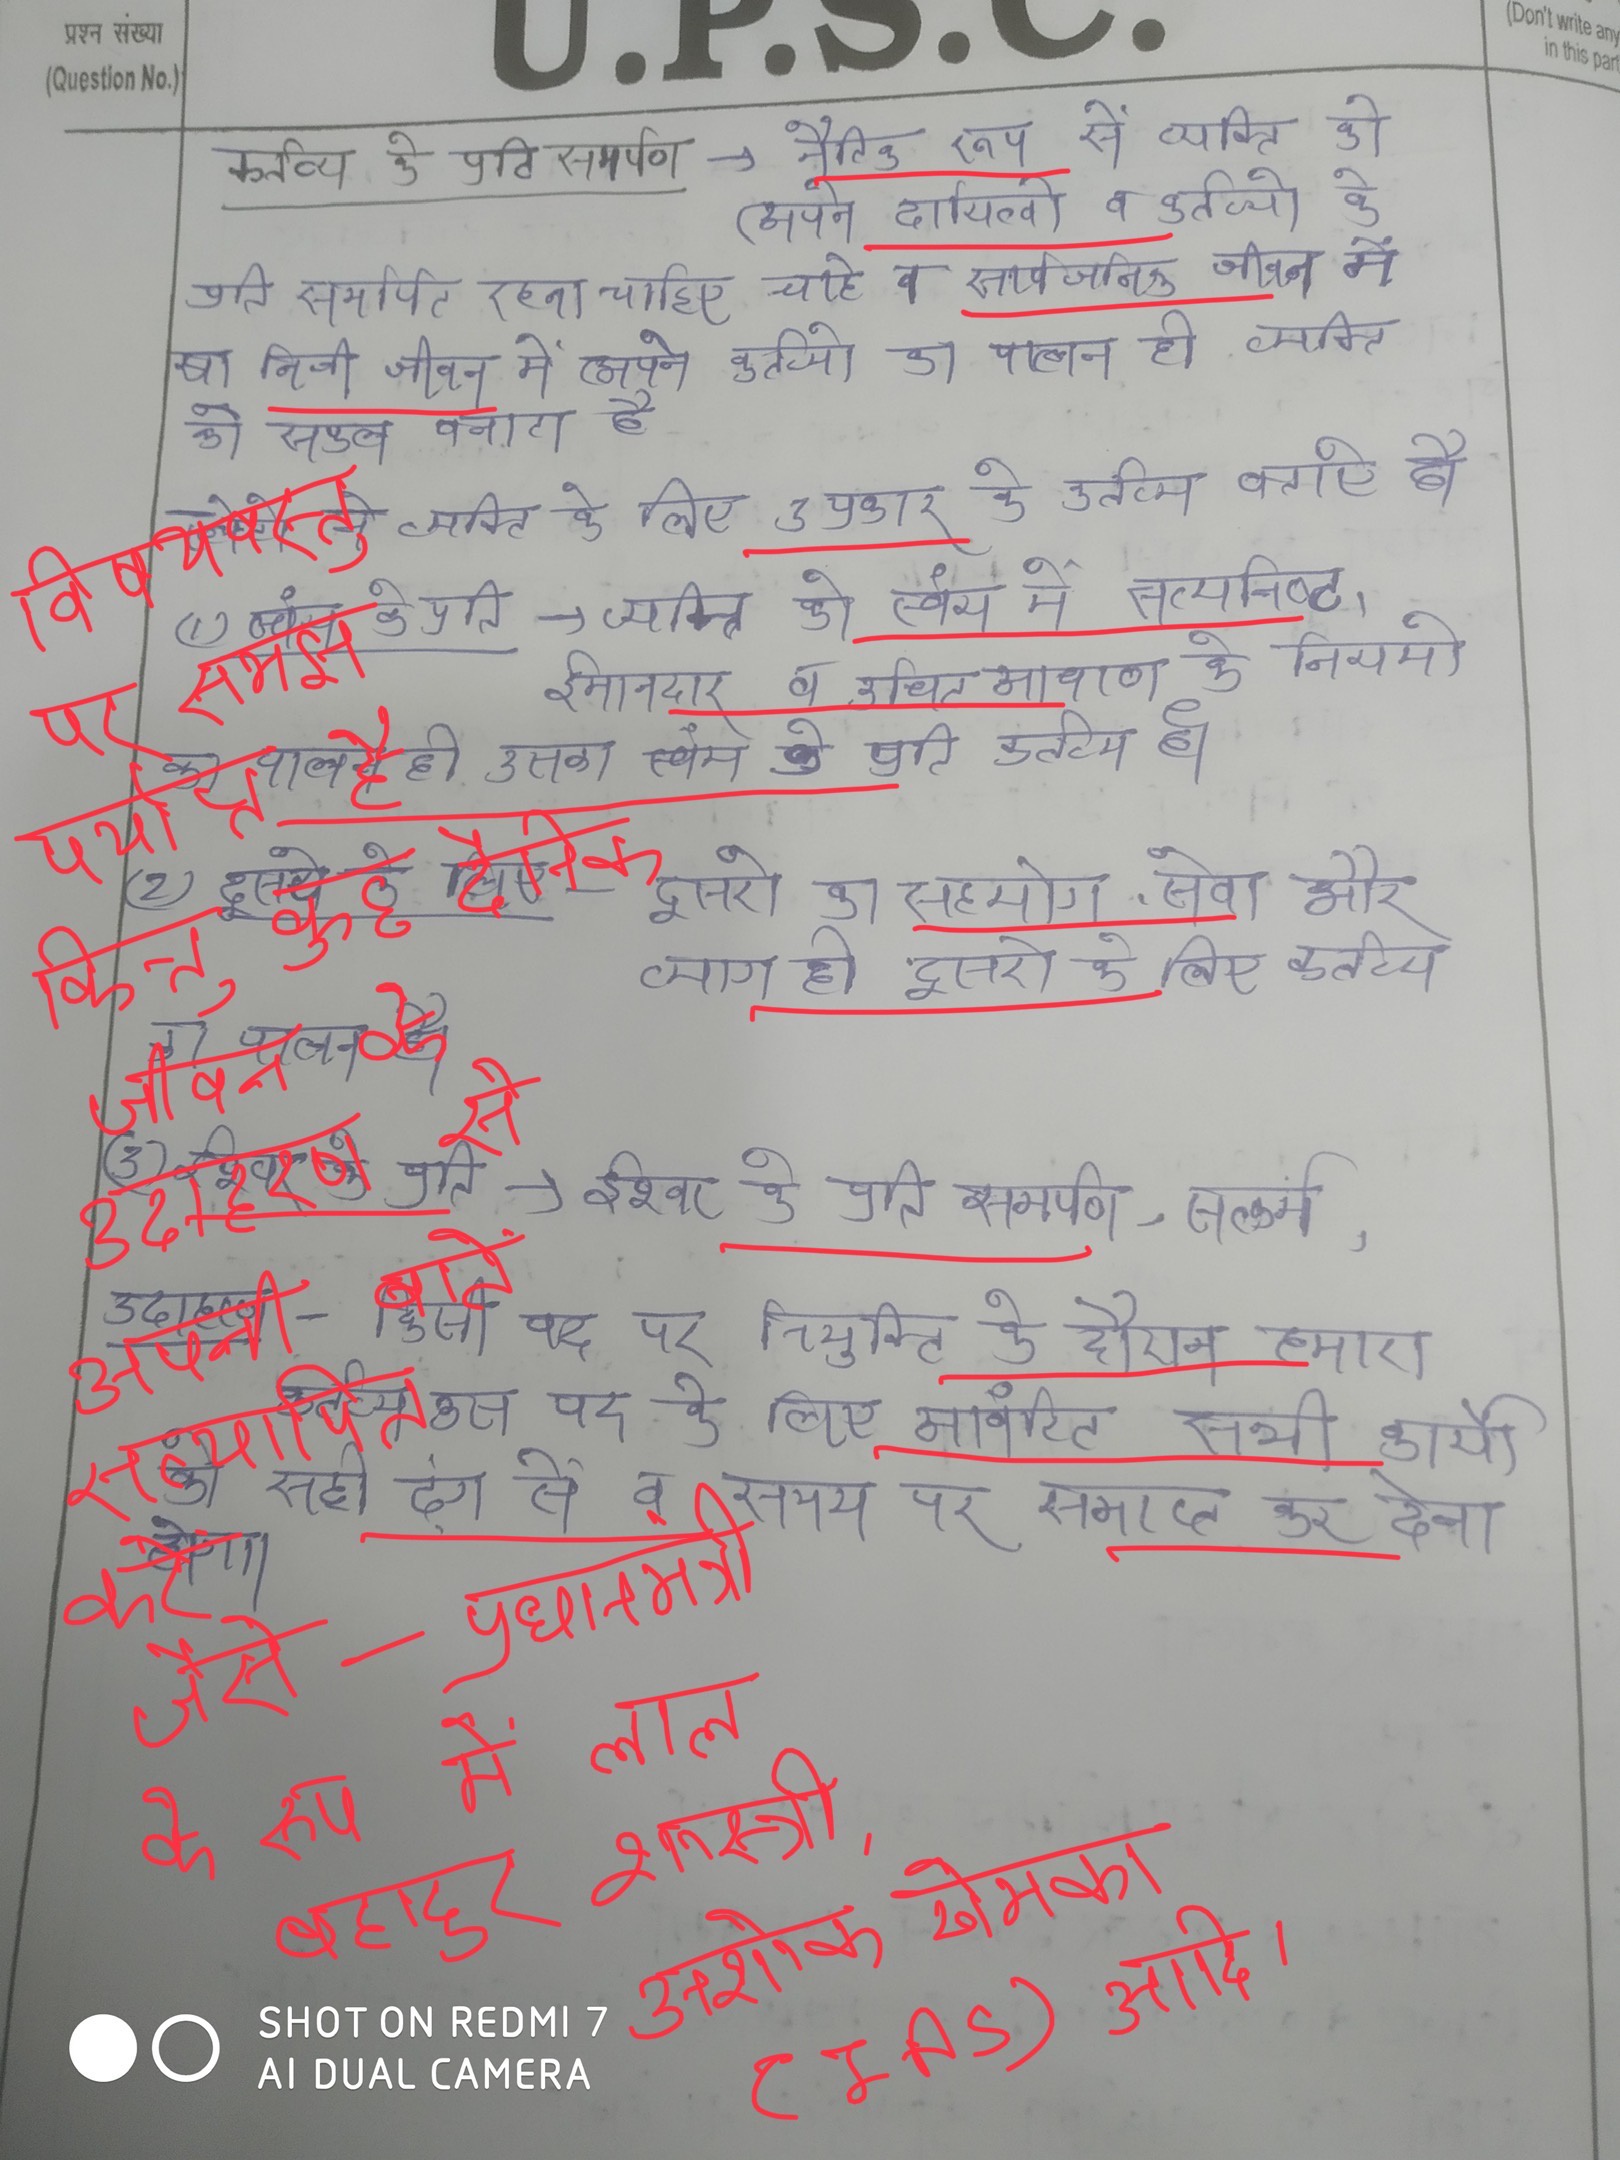 प्रश्न संख्या
(Question No.)
U.P.S.C.
(Don't write any
in this part
कर्तव्य के प्रति समर्पण → नैतिक रूप सें व्यक्ति को
अपने दायित्वो व कर्तव्यो के
प्रति समर्पित रहना चाहिए चाहे व सार्वजनिक जीवन में
या निजी जीवन में अपने कर्तव्यो का पालन ही व्यक्ति
को सफल बनाता है
व्यक्ति के लिए 3 प्रकार के कर्तव्य बताऐ है
(1) स्वंय के प्रति → व्यक्ति को स्वंय में सत्यनिष्ठ,
ईमानदार व उचित आचरण के नियमो
का पालन ही उसका स्वंय के प्रति कर्तव्य है।
(2) दूसरो के लिए - दूसरो का सहयोग, सेवा और
त्याग ही दूसरो के लिए कर्तव्य
का पालन है
(3) ईश्वर के प्रति → ईश्वर के प्रति समर्पण, सत्कर्म,
उदाहरण - किसी पद पर नियुक्ति के दौरान हमारा
कर्तव्य उस पद के लिए आवंटित सभी कार्यो
को सही ढंग से व समय पर समाप्त कर देना
होगा।
विषयवस्तु
पर समझ
पर्याप्त है
किन्तु कुछ दैनिक
जीवन के
उदाहरण से
अपनी बातें
सत्यापित
करें
जैसे - प्रधानमंत्री
के रूप में लाल
बहादुर शास्त्री,
अशोक खेमका
(IAS) आदि।
SHOT ON REDMI 7
AI DUAL CAMERA